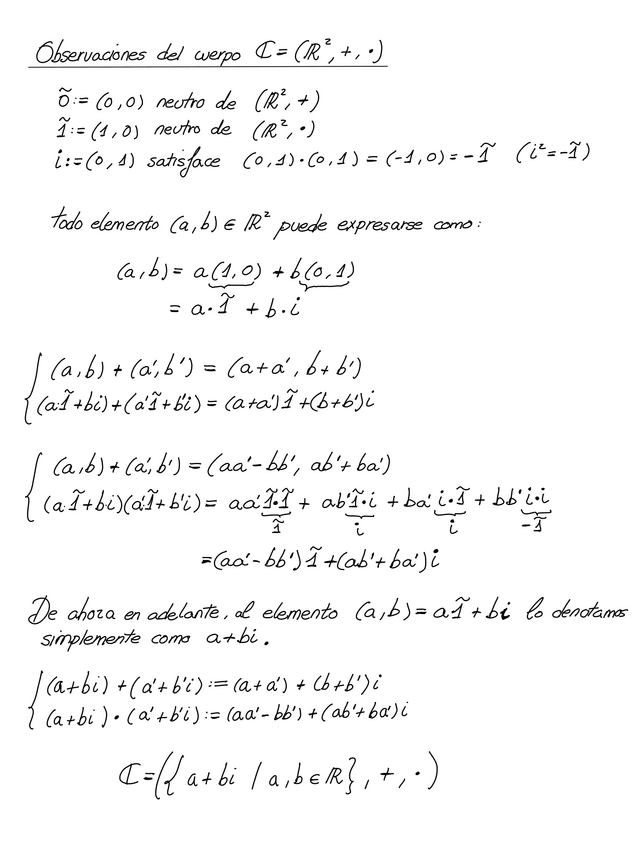 Observaciones del cuerpo ℂ = (ℝ², +, ·)
0̃ := (0,0) neutro de (ℝ², +)
1̃ := (1,0) neutro de (ℝ², ·)
i := (0,1) satisface (0,1)·(0,1) = (-1,0) = -1̃ (i² = -1̃)
todo elemento (a,b) ∈ ℝ² puede expresarse como:
(a,b) = a(1,0) + b(0,1)
= a·1̃ + b·i
(a,b) + (a',b') = (a+a', b+b')
(a1̃+bi)+(a'1̃+b'i) = (a+a')1̃+(b+b')i
(a,b) + (a',b') = (aa'-bb', ab'+ba')
(a1̃+bi)(a'1̃+b'i) = aa'1̃·1̃ + ab'1̃·i + ba'i·1̃ + bb'i·i
1̃ i i -1̃
=(aa'-bb')1̃+(ab'+ba')i
De ahora en adelante, al elemento (a,b) = a1̃ + bi lo denotamos
simplemente como a+bi.
(a+bi)+(a'+b'i) := (a+a') + (b+b')i
(a+bi)·(a'+b'i) := (aa'-bb')+(ab'+ba')i
ℂ=({a+bi / a,b∈ℝ}, +, ·)